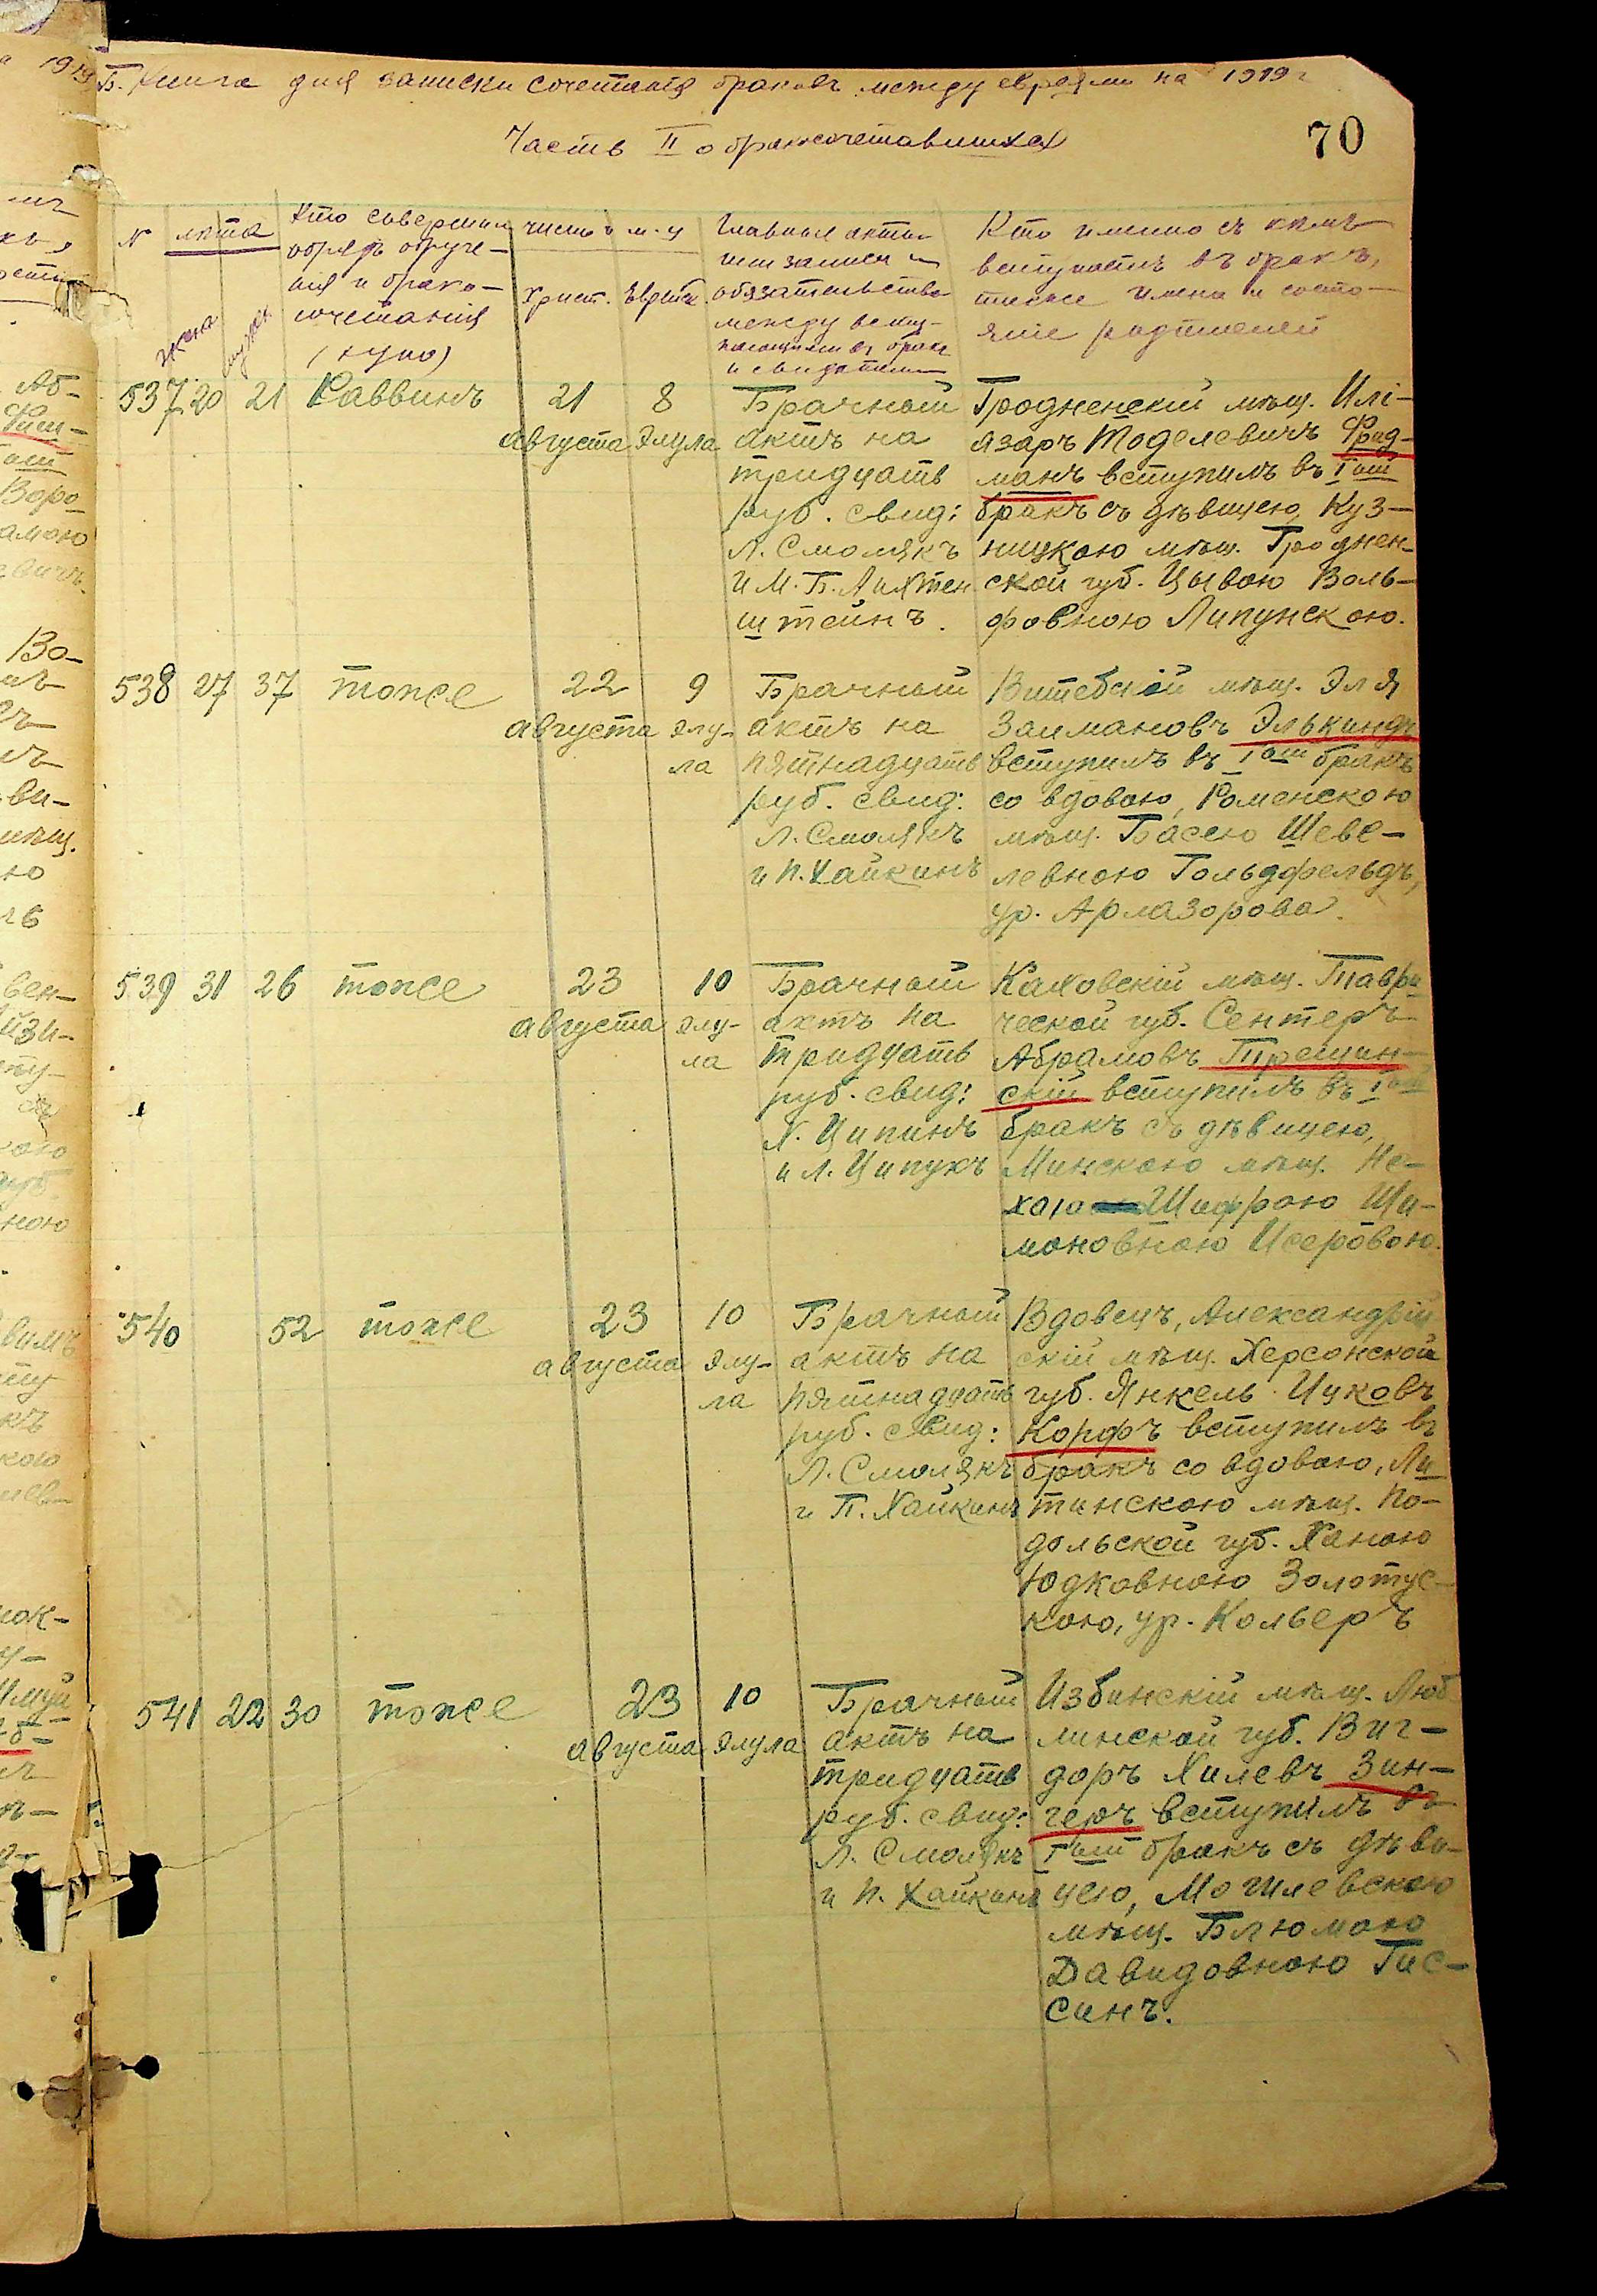 Б. Книга для записки сочетанія браковъ между евреями на 1919 г
Часть II о бракосочетавшихся
70
N лѣта
жена
мужа
Кто совершил
обрядъ обруче-
нія и брако-
сочетанія
(хупо)
число и м-ц
Христ. Еврейск.
Главныя акты
или записи и
обязательства
между всту-
пающими въ бракъ
и свидѣтели
Кто именно съ кѣмъ
вступаетъ въ бракъ,
также имена и состо-
яніе родителей
537 20 21 Раввинъ
21
августа
8
Элула
Брачный
актъ на
тридцать
руб. свид:
Л. Смолякъ
и М. Б. Лихтен
штейнъ.
Гродненскій мѣщ. Илі-
язаръ Тоделевичъ Фрид-
манъ вступилъ въ Iый
бракъ съ дѣвицею, Куз-
ницкою мѣщ. Гроднен-
ской губ. Цывою Воль-
фовною Липунскою.
538 27 37 тоже
22
августа
9
Элу-
ла
Брачный
актъ на
пятнадцать
руб. свид:
Л. Смолякъ
и П. Хайкинъ
Витебскій мѣщ. Эля
Залмановъ Элькиндъ
вступилъ въ Iый бракъ
со вдовою, Роменскою
мѣщ. Басею Шеве-
левною Гольдфельдъ,
ур. Арлазорова.
539 31 26 тоже
23
августа
10
Элу-
ла
Брачный
актъ на
тридцать
руб. свид:
Х. Ципинъ
и Л. Ципукъ
Каховскій мѣщ. Таври
ческой губ. Сентеръ
Абрамовъ Трещин-
скій вступилъ въ Iый
бракъ съ дѣвицею,
Минскою мѣщ. Не-
хою Шифрою Ши-
моновною Исеровою.
540 52 тоже
23
августа
10
Элу-
ла
Брачный
актъ на
пятнадцать
руб. свид:
Л. Смолякъ
и П. Хайкинъ
Вдовецъ, Александрій
скій мѣщ. Херсонской
губ. Янкель Ицковъ
Корфъ вступилъ въ
бракъ со вдовою, Ли
тинскою мѣщ. По-
дольской губ. Ханою
Юдковною Золотус-
кою, ур. Кольверъ
541 22 30 тоже
23
августа
10
Элула
Брачный
актъ на
тридцать
руб. свид:
Л. Смолякъ
и П. Хайкинъ
Избинскій мѣщ. Люб
линской губ. Виг-
доръ Хилевъ Зин-
геръ вступилъ въ
Iый бракъ съ дѣви-
цею, Могилевскою
мѣщ. Блюмою
Давидовною Гис-
синъ.